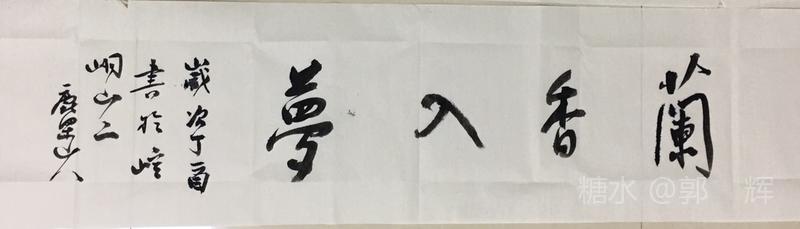 蘭香入夢
歲次丁酉
書於崆
峒山
山人
糖水 @郭 辉